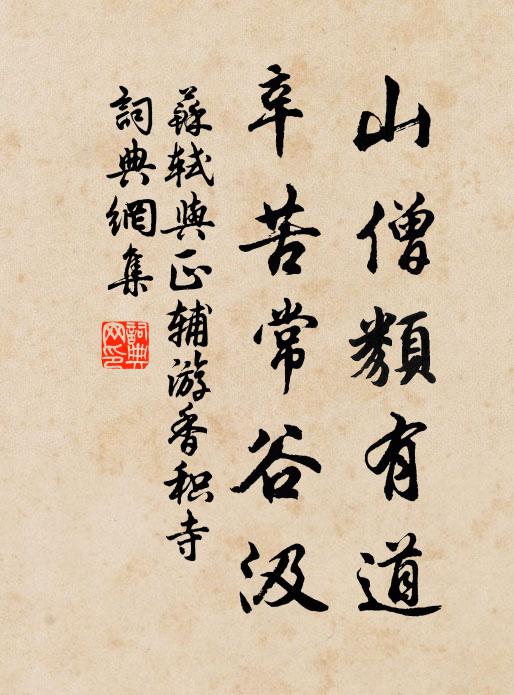 山僧類有道
辛苦常谷汲
蘇軾與正辅游香积寺
詞典網集
詞典网印